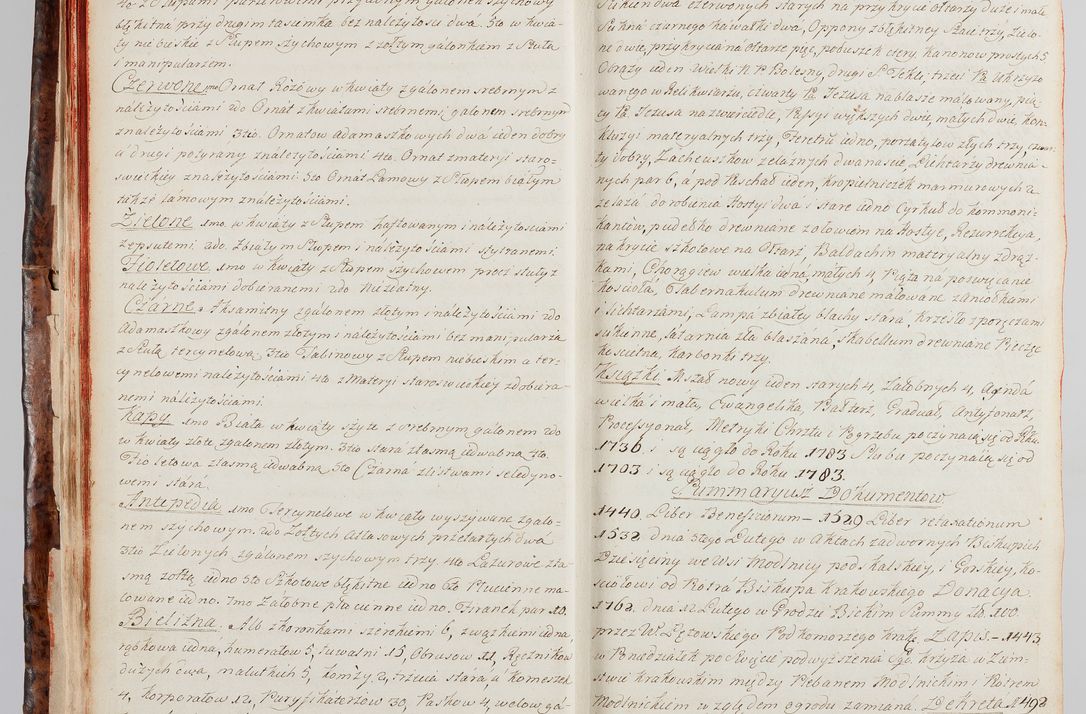 błękitna przy drugim tasiemka bez należytości dwa. 5to w kwia-
ty niebieskie z Słupem szychowym z żółtym galonkiem z Stułą
i manipularzem.
Czerwone 1mo Ornat Różowy w kwiaty z galonem srebrnym z
należytościami 2do Ornat z kwiatami srebrnemi galonem srebrnym
z należytościami 3tio. Ornatow adamaszkowych dwa ieden dobry
a drugi potyrany z należytościami 4to. Ornat z materyi staro-
swieckiey z należytościami 5to Ornat Lamowy z Słupem białym
także lamowym z należytościami.
Zielone 1mo. w kwiaty z Słupem haftowanym i należytościami
zepsutemi 2do. z białym Słupem i należytościami
Fioletowe. 1mo w kwiaty z Słupem szychowem precz stuły z
należytościami dobieranemi 2do niezdatny.
Czarne Aksamitny z galonem złotym i należytościami 2do
Adamaszkowy z galonem złotym i należytościami bez manipularza
z Stułą tercynelową 3tio Tabinowy z Słupem niebieskim a ter-
cynelowemi należytościami 4to. z Materyi staroswieckiey z dobiera-
nemi należytościami.
Kapy 1mo Biała w kwiaty szyte z srebrnym galonem 2do
w kwiaty złote z galonem złotym. 3tio stara z lasmą iedwabną 4to.
Fioletowa z lasmą iedwabną 5to Czarna z listwami seledyno-
wemi stara.
Antepedia 1mo Tercynelowe w kwiaty wyszywane z galo-
nem szychowym. 2do Zołtych Atłasowych przetartych dwa
3tio Zielonych z galonem szychowym trzy 4to Lazurowe z ta-
smą zołtą iedno 5to Szkotowe błękitne iedno 6to Płucienne ma-
lowane iedno. 7mo Załobne płucienne iedno, Firanek par 10.
Bielizna. Alb z koronkami szerokiemi 6, z wązkiemi iedna
rąbkowa iedna, humerałow 5, tuwalni 15, Obrusow 11, Ręcznikow
dużych 6, malutkich 5, komży 2, trzecia stara, a komeszek
4, korporałow 12, Puryfikaterzow 30, Paskow 4, welow ga-
Sukien dwa czerwonych starych na przykrycie ołtarzy duże i małe
Sukna czarnego kawałki dwa, Oppony z błękitney Szaie trzy, zielo-
ne dwie, przykrycia na Ołtarze pięć, poduszek cztery, kanonow prostych 5
Obrazy ieden wielki N. P. Bolesny, drugi S. Tekli, trzeci Pa. Ukrzyżo-
wanego w Relikwiarzu, czwarty Pa Jezusa na blasze malowany, pią-
ty Pa. Jezusa na zwierciedle, Passyi większych dwie, małych dwie, kon-
kluzyi materyalnych trzy, Feretra iedno, porzatylow złych trzy, czwar-
ty dobry, Zacheuszkow zelaznych dwanaście, Lichtarzy drewnia-
nych par 6, a pod Paschał ieden, Kropielniczek marmurowych 2.
żelaza do robienia Hostyi dwa i stare iedno Cyrkuł do kommuni-
kantow, pudełko drewniane z ołowiem na Hostye, Rezurrekcya,
nakrycie szkotowe na Ołtarz, Baldachin materyalny z drąż-
kami, Chorągiew wielka iedna, małych 4, Piąta na poswięcanie
Koscioła, Tabernakulum drewniane malowane z aniołkami
i lichtarzami, Lampa z białey blachy stara, krzesło z poręczami
sukienne, latarnia zła blaszana. Skabellum drewniane Pieczęć
Koscielna, karbonki trzy.
Ksiązki. Mszał nowy ieden starych 4, żałobnych 4, Agenda
wielka i mała, Ewangelika, Psałterz, Graduał, Antyfonarz,
Processyonał, Metryki Chrztu i Pogrzebu poczynaią się od Roku
1736 i są ciągło do Roku 1783 Slubu poczynaią się od
1703 i są ciągło do Roku 1783.
Summaryusz Dokumentow
1440. Liber Beneficiorum – 1529 Liber retaxationum
1532 dnia 5tego Lutego w Aktach zadwornych Biskupich
Dziesięciny we Wsi Modlnicy podskalskiey, i Gorskiey, Ko-
sciołowi od Piotra Biskupa Krakowskiego Donacya.
1762. dnia 12 Lutego w Grodzie Bieckim Summy Zł. 100
przez Wo Łętowskiego Podkomorzego Krakgo Zapis – 1443
w Poniedziałek po Swięcie podwyższenia Sgo krzyża w Ziem-
stwie krakowskim między Plebanem Modlnickim i Piotrem
Modlnickim względem ogrodu zamiana. Dekreta 1498